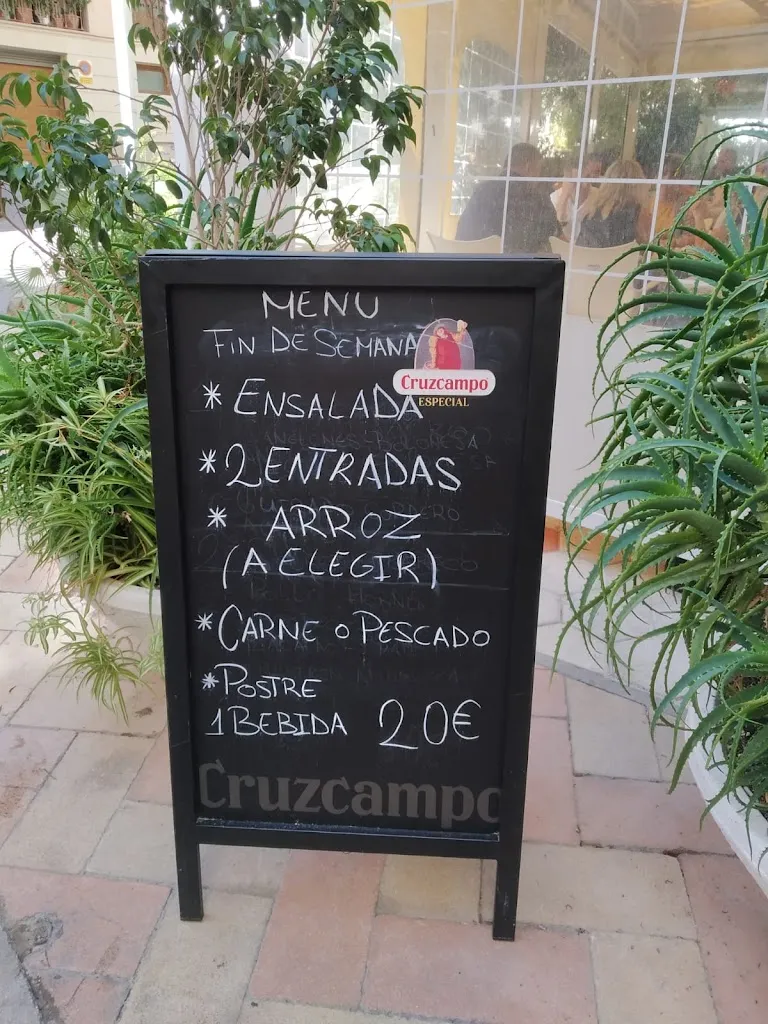 MENU
FIN DE SEMANA
Cruzcampo
ESPECIAL
* ENSALADA
* 2 ENTRADAS
* ARROZ
(A ELEGIR)
* CARNE O PESCADO
* POSTRE
1 BEBIDA 20€
Cruzcampo